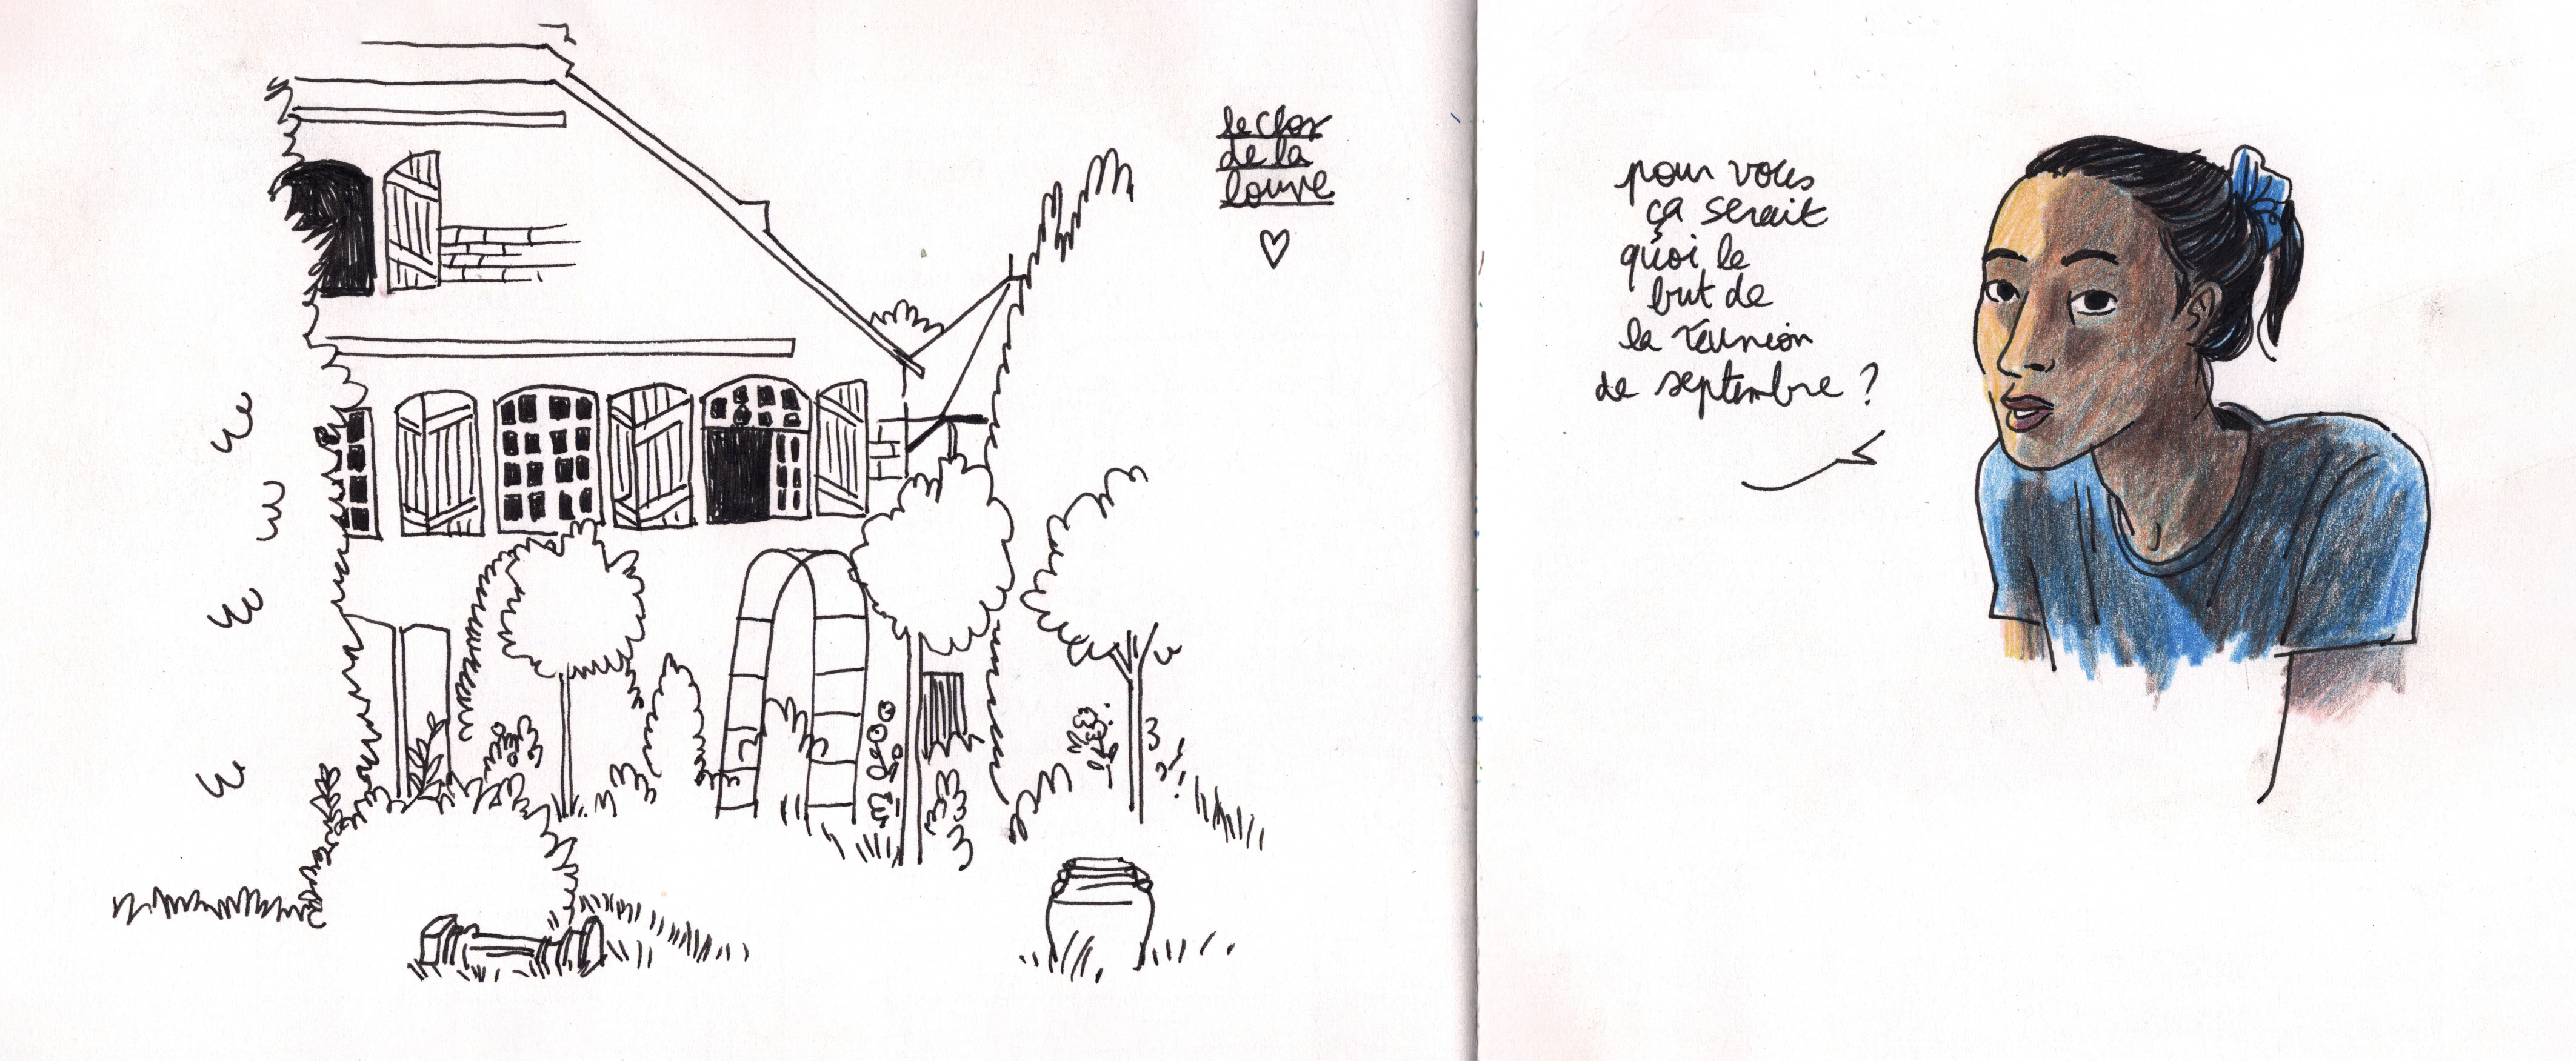 le clos
de la
louve
pour vous
ça serait
quoi le
but de
la réunion
de septembre ?